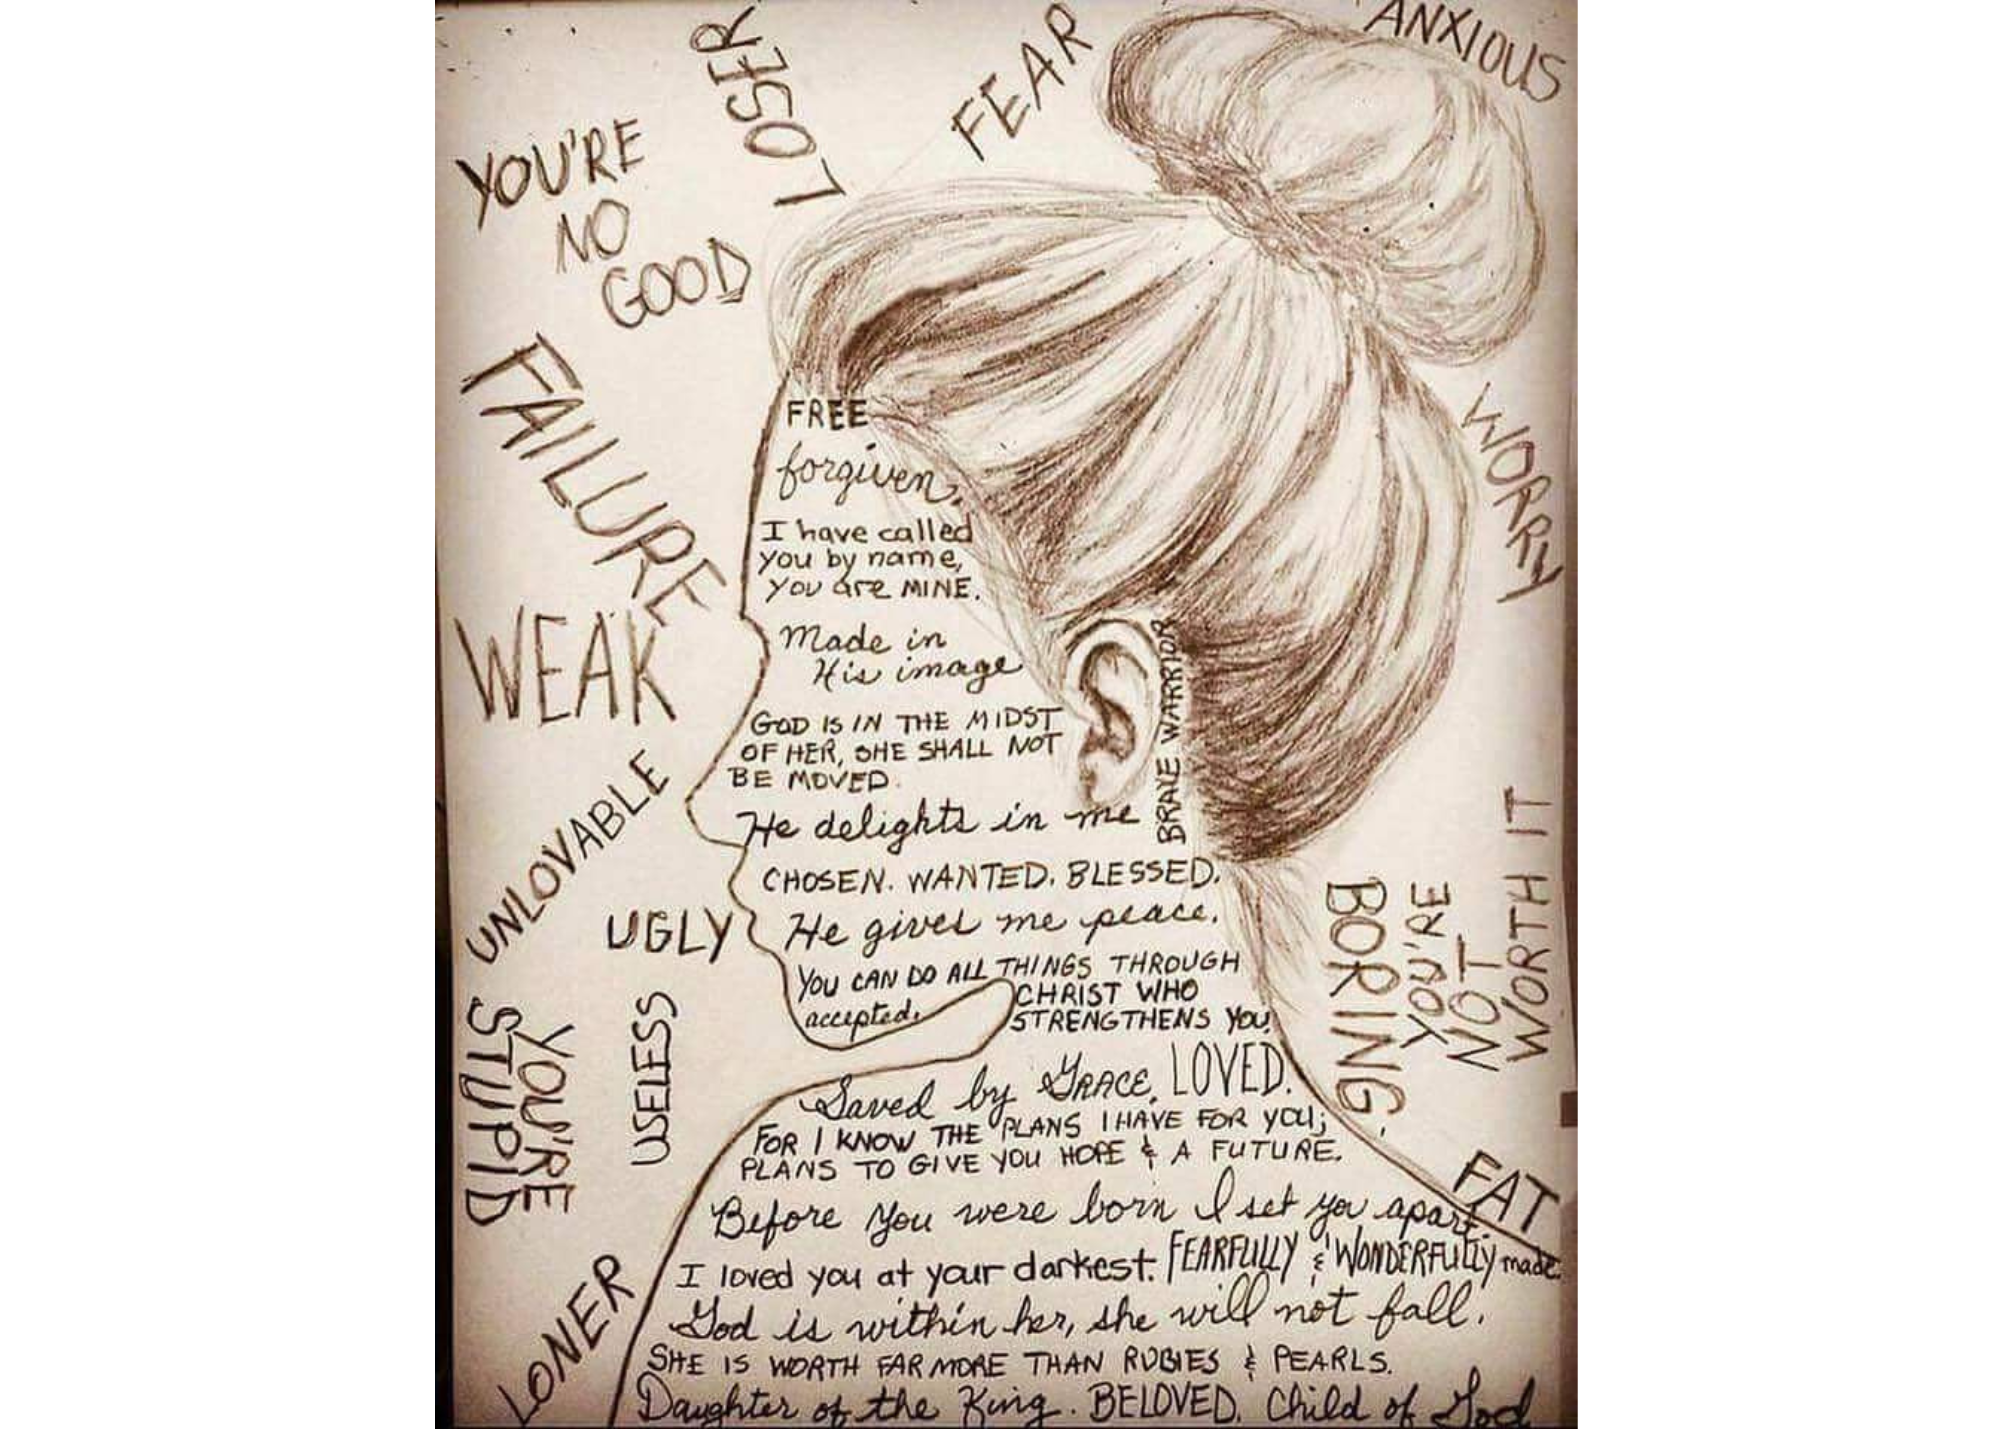 LOSER
FEAR
ANXIOUS
YOU'RE
NO
GOOD
FAILURE
WEAK
UNLOVABLE
UGLY
YOU'RE
STUPID
USELESS
LONER
FREE
forgiven.
I have called
you by name,
you are MINE.
Made in
His image
GOD IS IN THE MIDST
OF HER, SHE SHALL NOT
BE MOVED.
He delights in me
CHOSEN. WANTED. BLESSED.
He gives me peace.
YOU CAN DO ALL THINGS THROUGH
CHRIST WHO
STRENGTHENS YOU.
accepted.
Saved by GRACE. LOVED.
FOR I KNOW THE PLANS I HAVE FOR YOU;
PLANS TO GIVE YOU HOPE & A FUTURE.
Before you were born I set you apart
I loved you at your darkest. FEARFULLY & WONDERFULLY made
God is within her, she will not fall.
SHE IS WORTH FAR MORE THAN RUBIES & PEARLS.
Daughter of the King. BELOVED. Child of God
BRAVE WARRIOR
WORRY
BORING
YOU'RE
NOT
WORTH IT
FAT